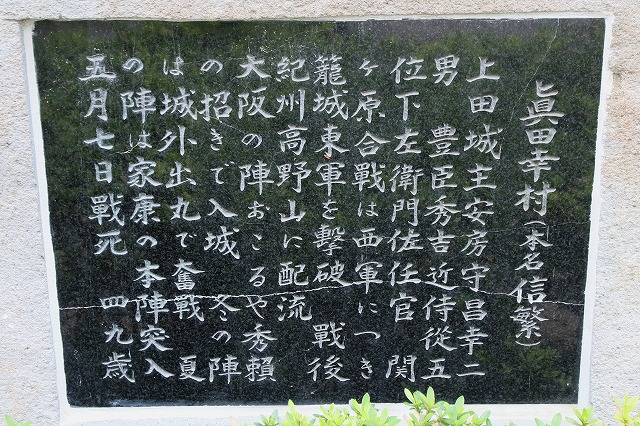 眞田幸村(本名信繁)
上田城主安房守昌幸二
男 豊臣秀吉近侍従五
位下左衛門佐任官 関
ヶ原合戰は西軍につき
籠城東軍を撃破 戰後
紀州高野山に配流
大阪の陣おこるや秀頼
の招きで入城 冬の陣
は城外出丸で奮戰 夏
の陣は家康の本陣突入
五月七日戰死 四九歳